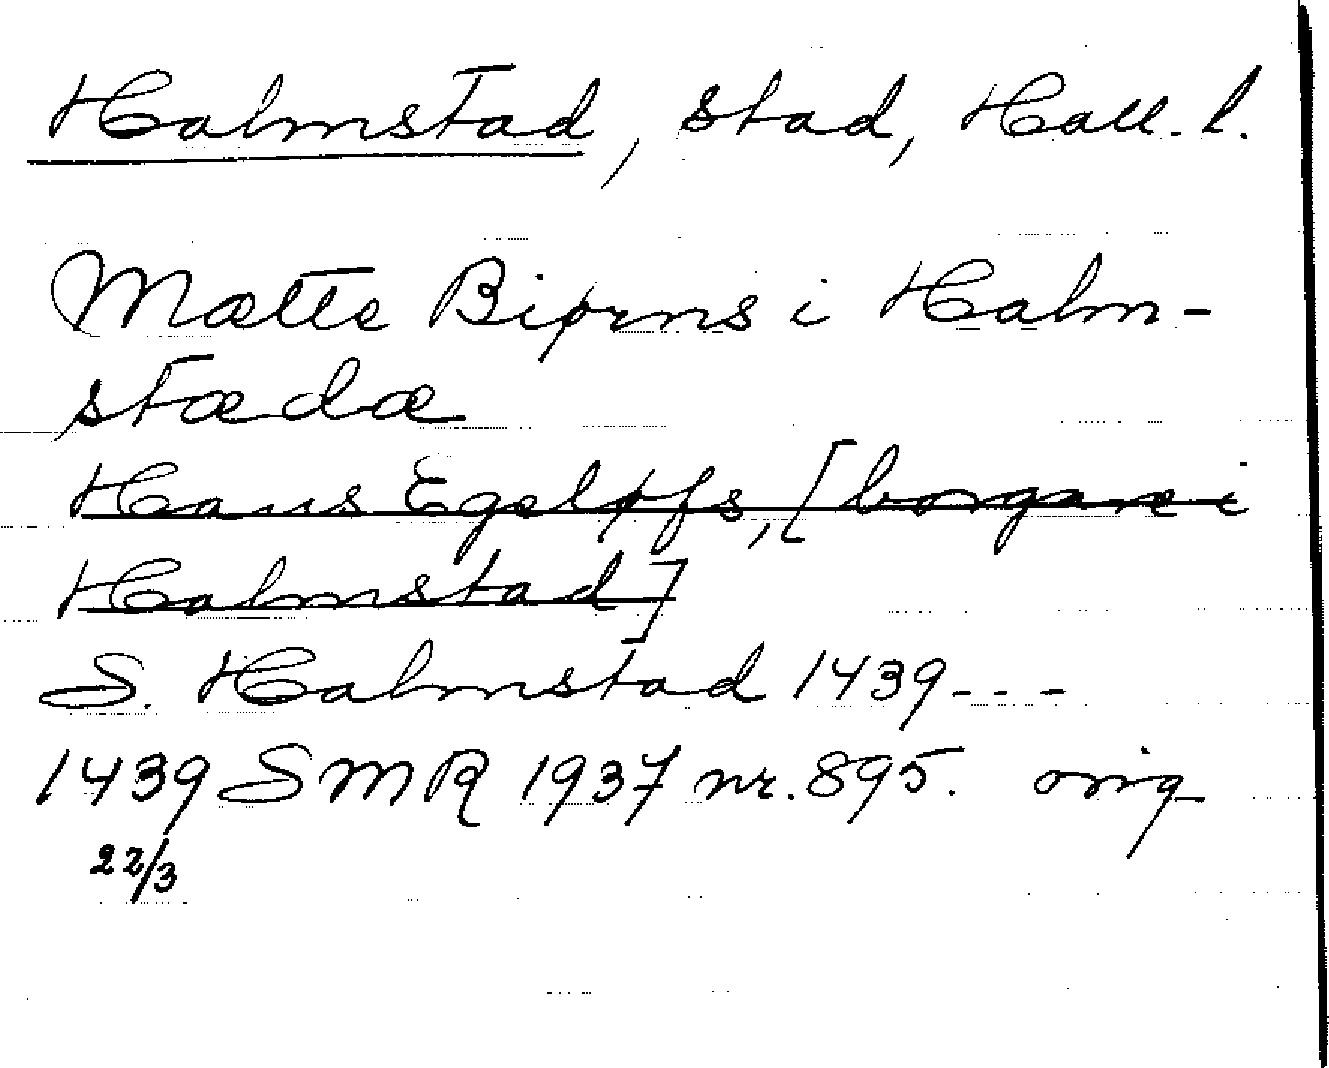 Halmstad, stad, Hall. l.
Mætte Biørns i Halm-
stædæ
Hans Egeløfs, [borgare i
Halmstad]
S. Halmstad 1439---
1439 SMR 1937 nr. 895. orig
22/3